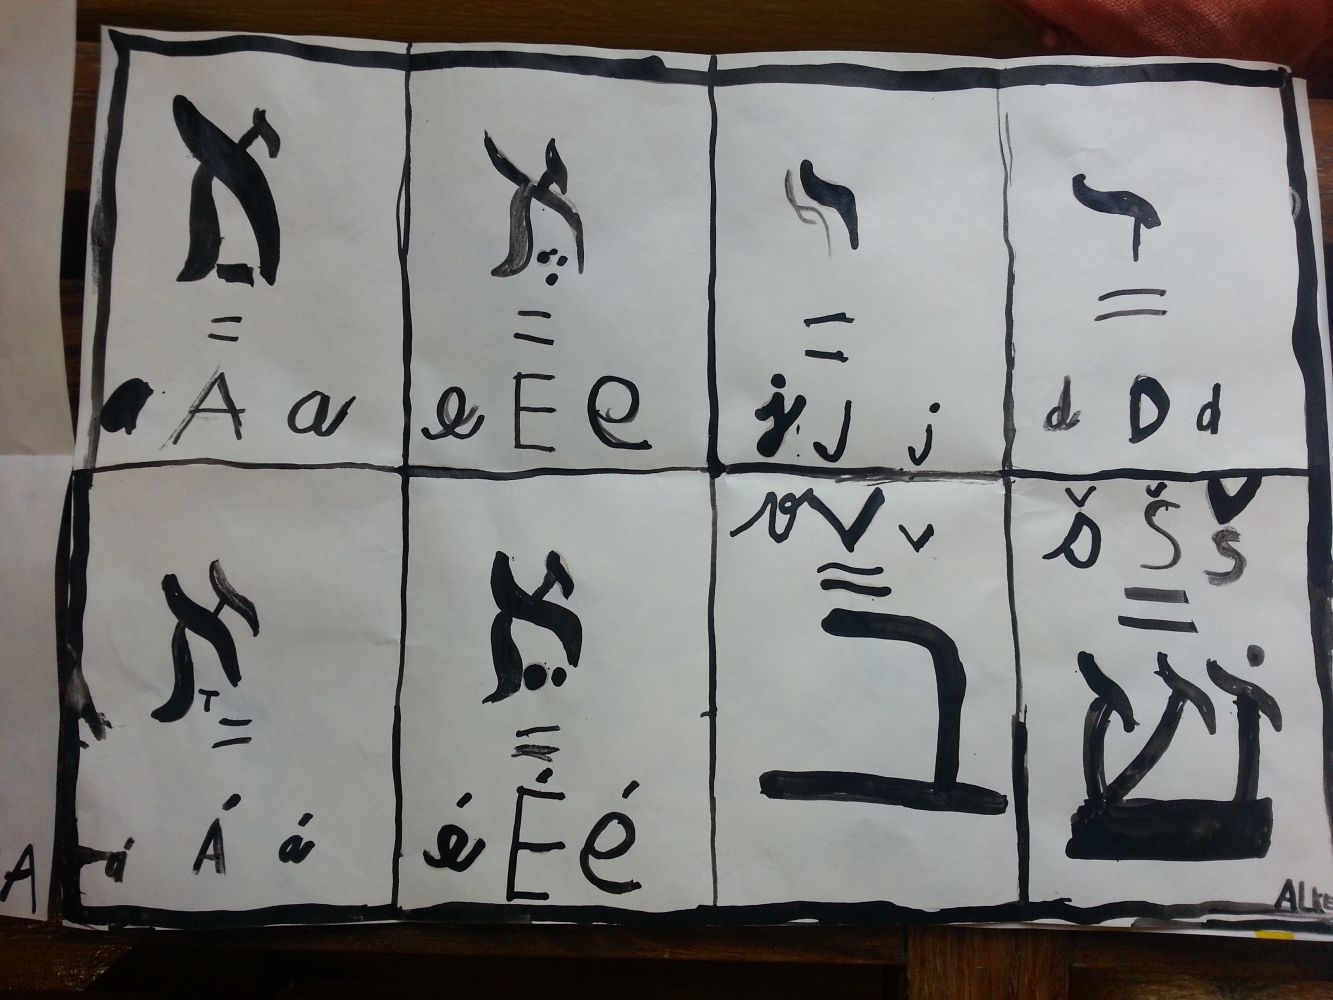 אַ
=
a A a
אֶ
=
e E e
י
=
j J j
ד
=
d D d
אָ
=
á Á á
אֵ
=
é É é
v V v
=
ב
š Š š
=
שׁ
A